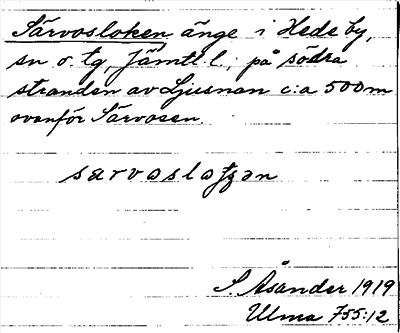 Särvosloken änge i Hede by,
sn o. tg, Jämtl. l., på södra
stranden av Ljusnan c:a 500 m
ovanför Särvosen.
særvoslotjən
S. Åsander 1919
Ulma 755:12